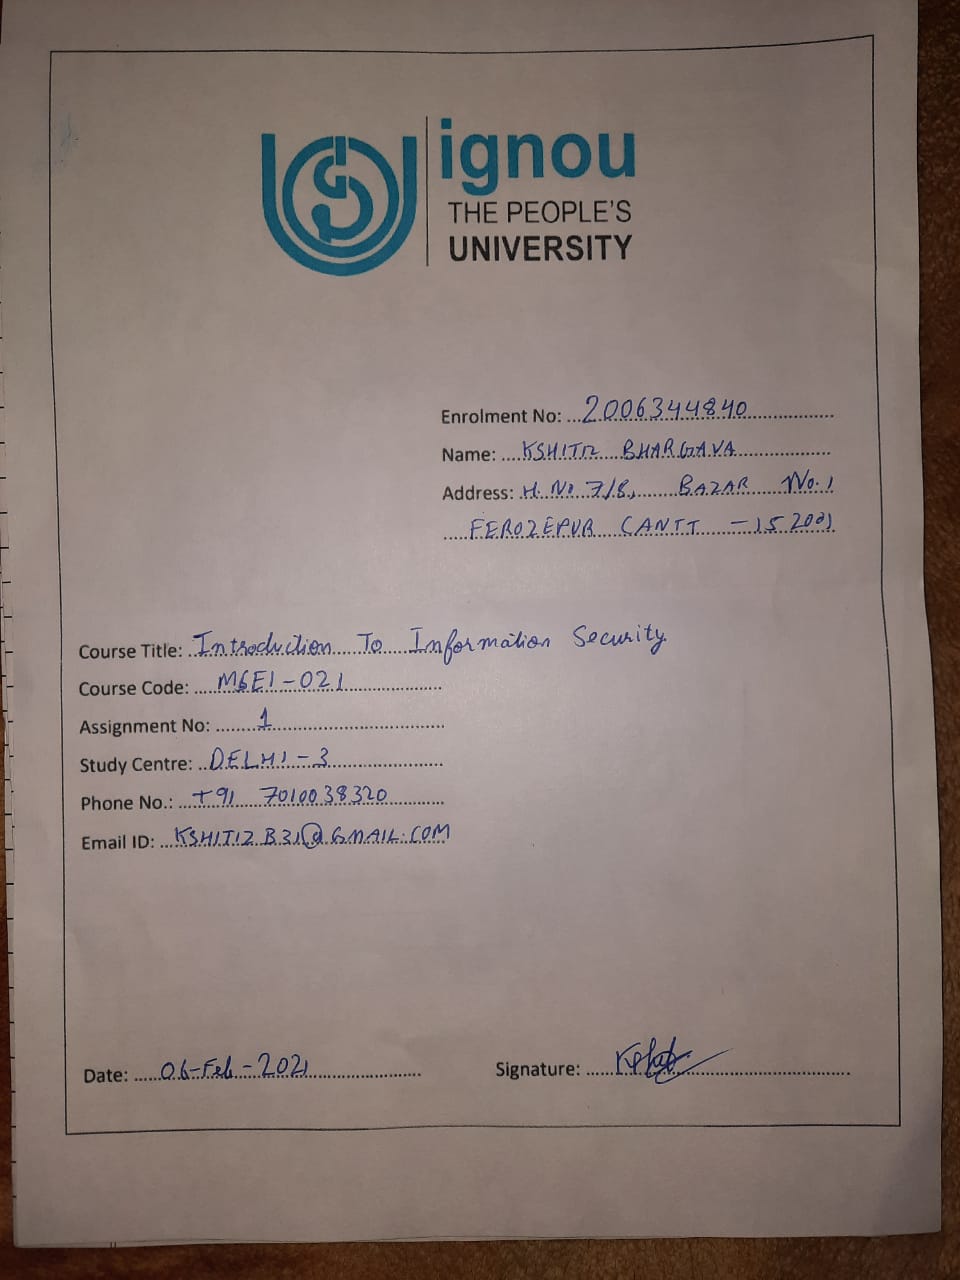 ignou
THE PEOPLE'S
UNIVERSITY
Enrolment No: 2006344840
Name: KSHITIZ BHARGAVA
Address: H. No 7/8, BAZAR No. 1
FEROZEPUR CANTT - 152001
Course Title: Introduction To Information Security
Course Code: MSEI-021
Assignment No: 1
Study Centre: DELHI-3
Phone No.: +91 7010038320
Email ID: KSHITIZ.B31@GMAIL.COM
Date: 06-Feb-2021
Signature: